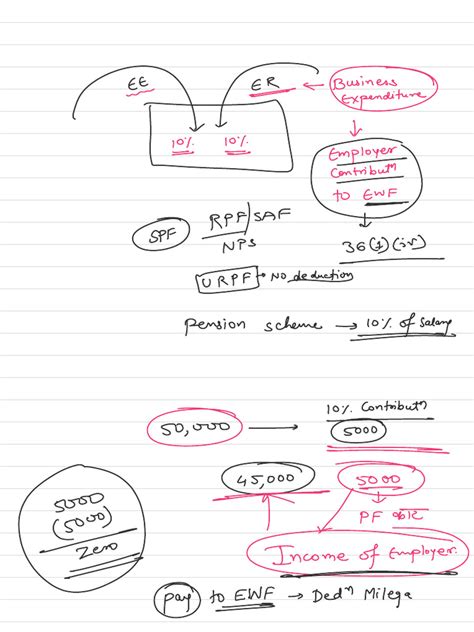 EE
ER ← Business Expenditure
10% 10%
Employer
Contributⁿ
to EWF
SPF
RPF/SAF
NPS
36(1)(iv)
URPF → No deduction
Pension scheme → 10% of Salary
50,000 → 10% Contributⁿ
5000
45,000
5000
5000
(5000)
Zero
PF
Income of Employer
pay to EWF → Dedⁿ Milega